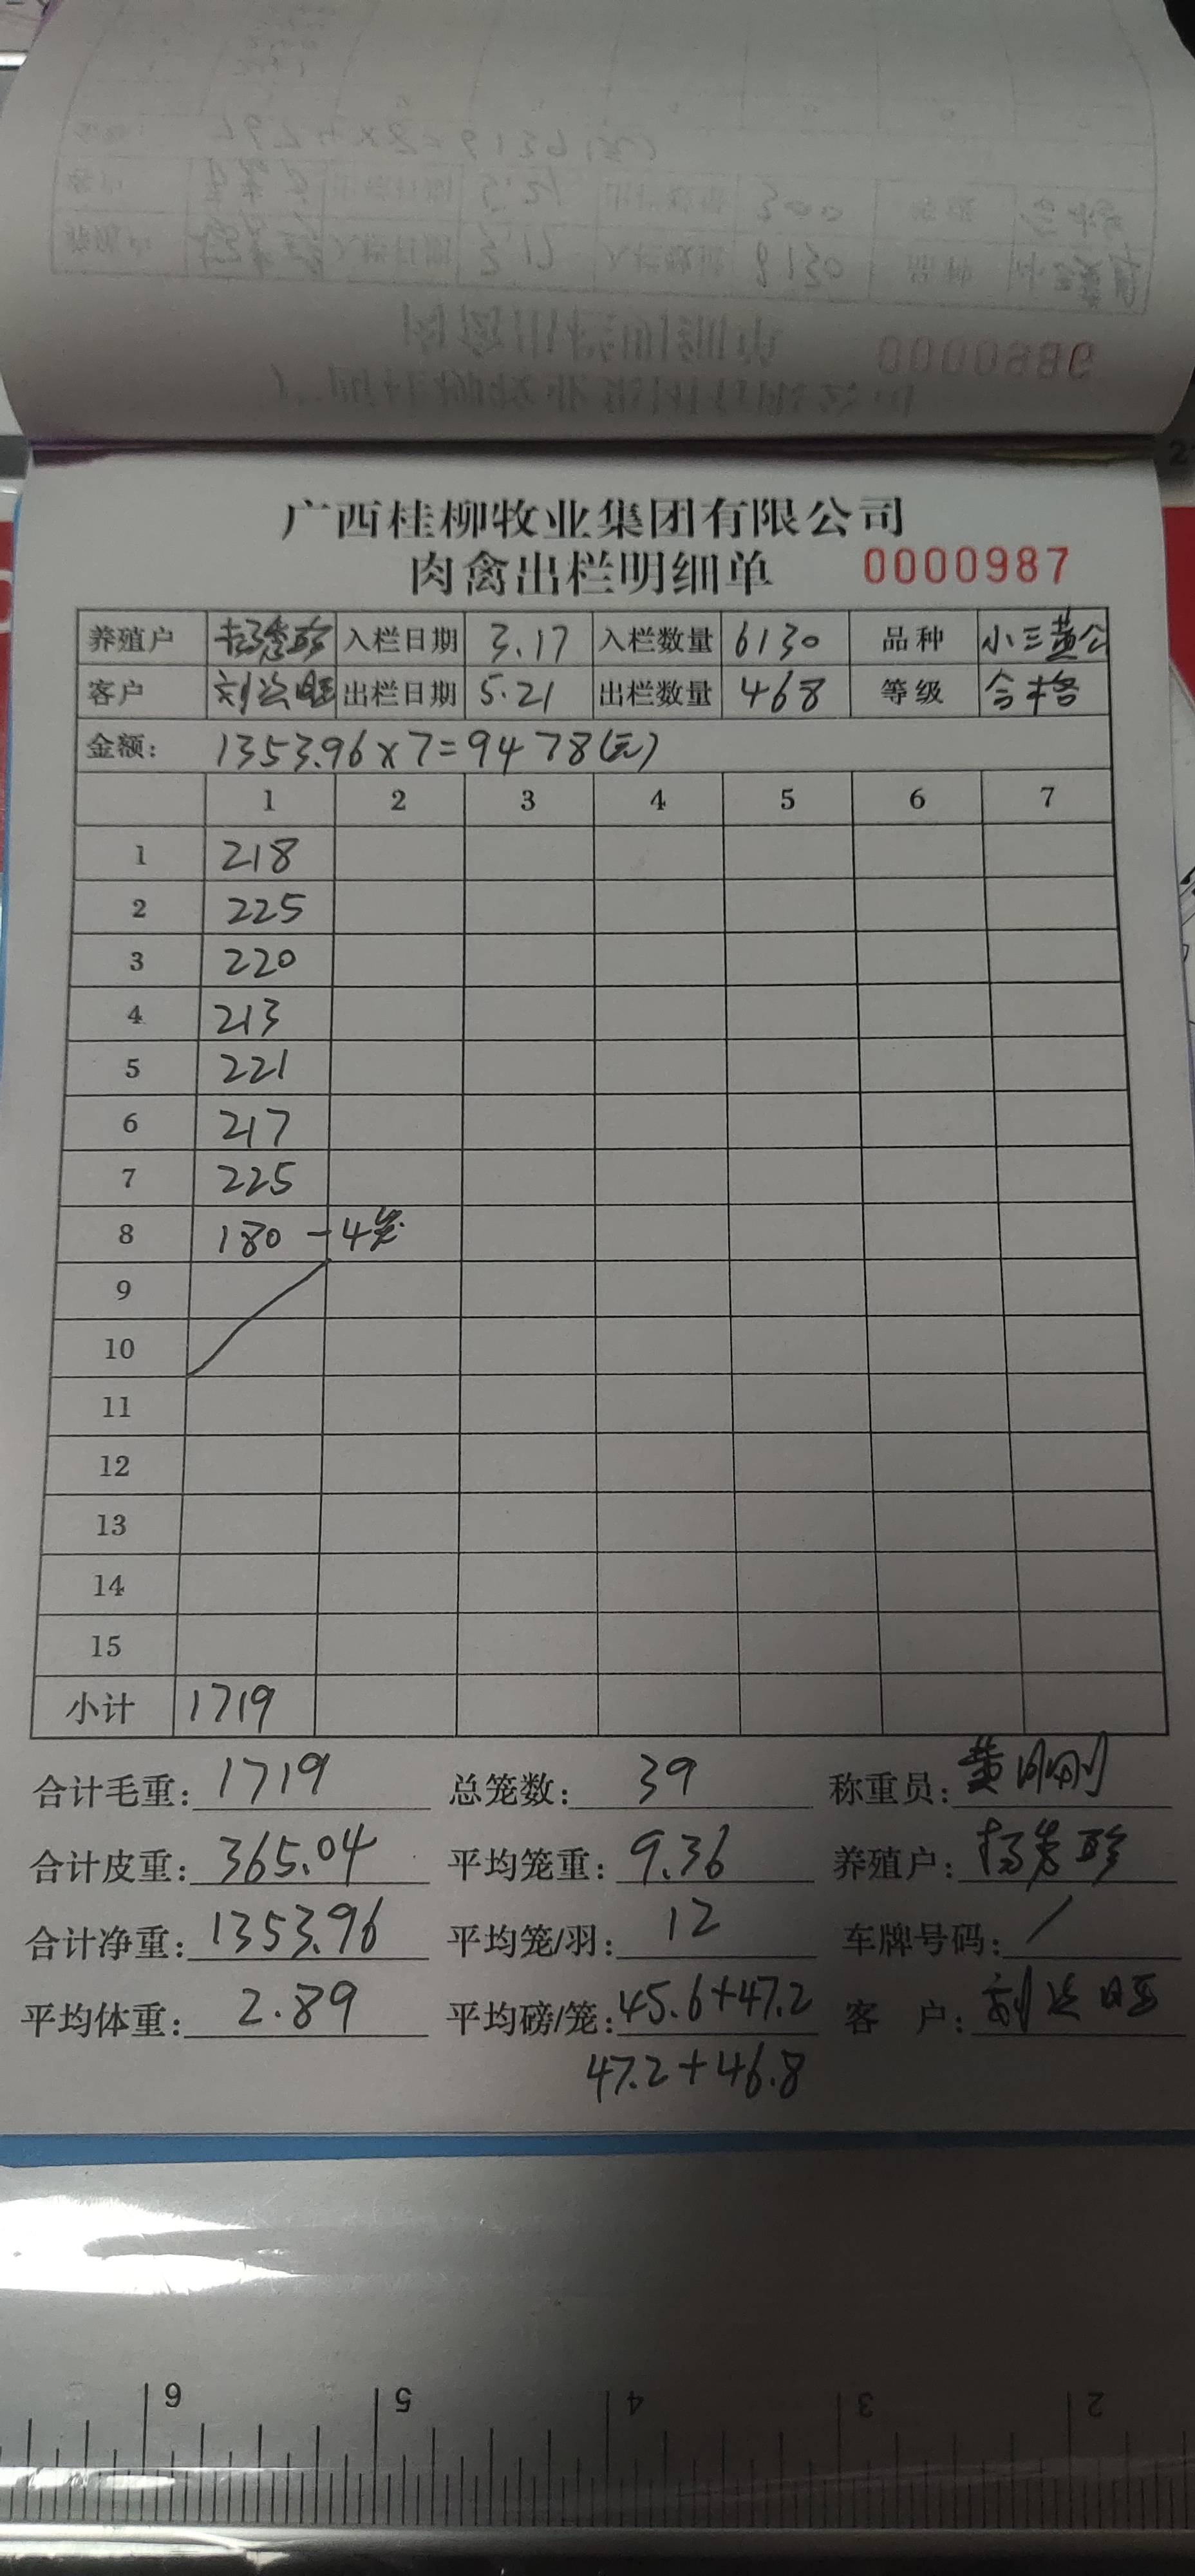 广西桂柳牧业集团有限公司
肉禽出栏明细单 0000987
养殖户 入栏日期 3.17 入栏数量 6130 品种 小三黄公
客户 刘 旺 出栏日期 5.21 出栏数量 468 等级 合格
金额: 1353.96×7=9478(元)
1 2 3 4 5 6 7
1 218
2 225
3 220
4 213
5 221
6 217
7 225
8 180 -4笼
9
10
11
12
13
14
15
小计 1719
合计毛重: 1719 总笼数: 39 称重员: 黄 刚
合计皮重: 365.04 平均笼重: 9.36 养殖户: 杨 珍
合计净重: 1353.96 平均笼/羽: 12 车牌号码: /
平均体重: 2.89 平均磅/笼: 45.6+47.2 客 户: 刘 旺
47.2+46.8
6 5 4 3 2